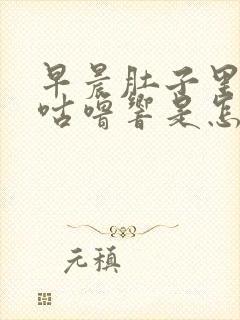 早晨肚子里
咕噜响是怎
元稹